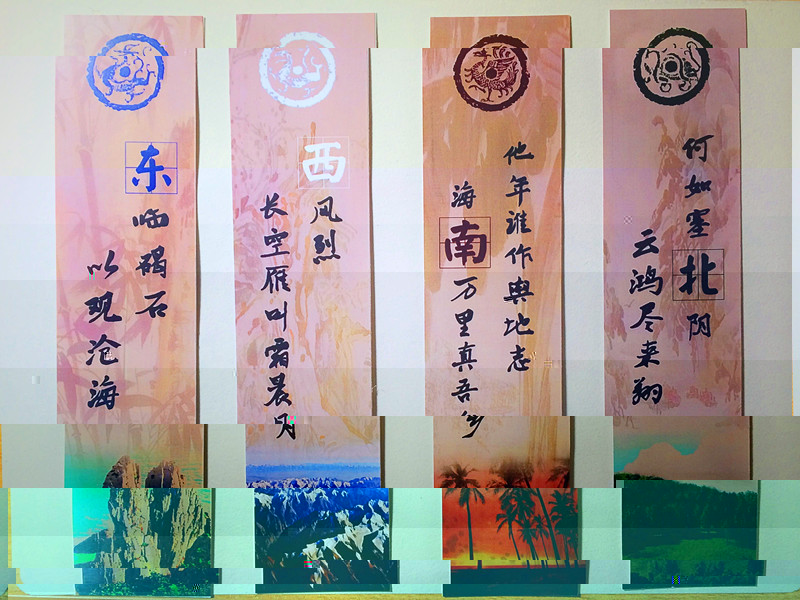 东临碣石
以观沧海
西风烈
长空雁叫霜晨月
他年谁作舆地志
海南万里真吾乡
何如塞北阴
云鸿尽来翔